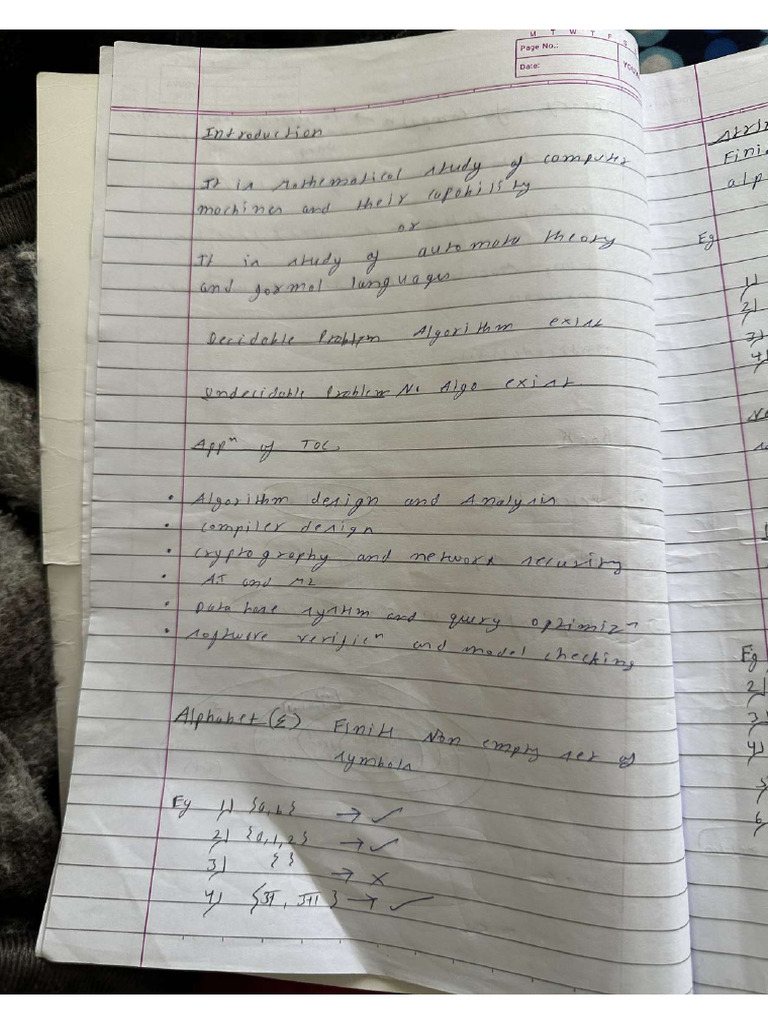 M T W T F S
Page No.:
Date:
YOUVA
Introduction
It is mathematical study of computer
machines and their capability
or
It is study of automata theory
and formal languages
Decidable Problem Algorithm exist
Undecidable Problem No Algo exist.
Appⁿ of TOC.
• Algorithm design and Analysis
• compiler design
• cryptography and network security
• AI and ML
• Data base system and query optimizⁿ
• software verificⁿ and model checking
Alphabet (Σ) Finite Non empty set of
symbols
Eg 1) {a, b} → ✓
2) {0, 1, 2} → ✓
3) { } → ×
4) {अ, आ} → ✓
Fini
alp
Eg
1)
2)
3)
4)
Eg
2)
3)
4)
5
6